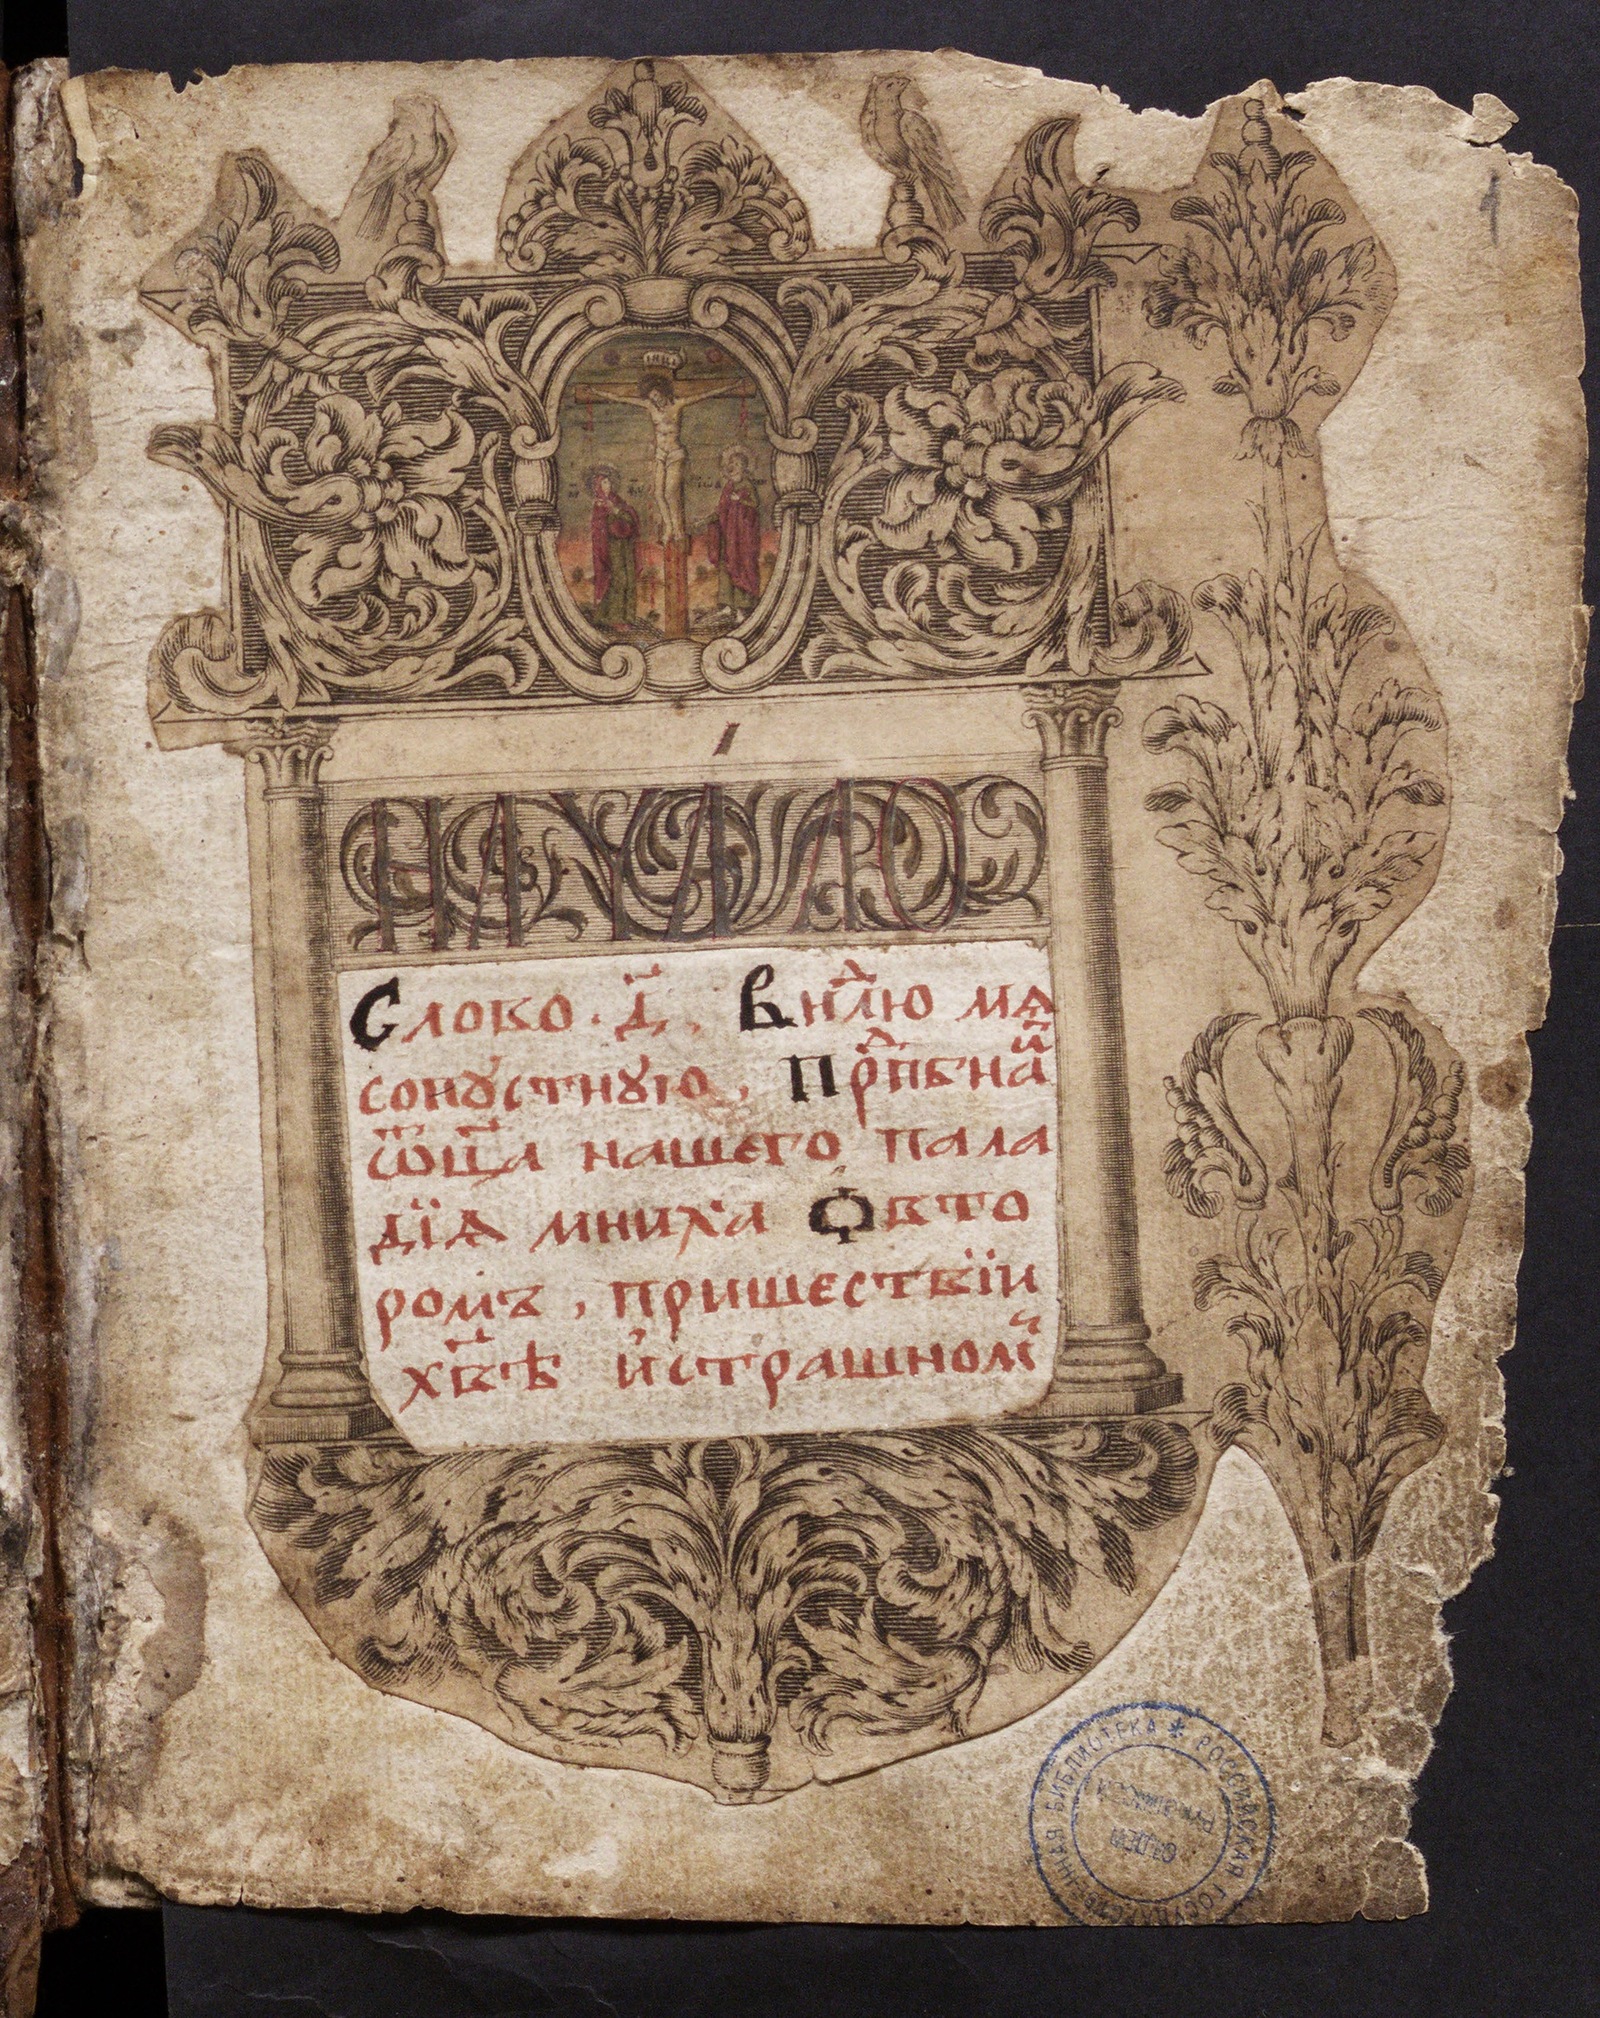 ІНЦІ
НАЧАЛО
Слово. д҃. Внⷧ҇ю мѧ
сопꙋстнꙋю, Прⷣпбнаⷢ҇
ѿц҃а нашего пала
дїѧ мниха Ѻвто
ромъ, пришествїи
хв҃ѣ истрашномⸯ
РОССИЙСКАЯ ГОСУДАРСТВЕННАЯ БИБЛИОТЕКА *
ОТДЕЛ
РУКОПИСЕЙ